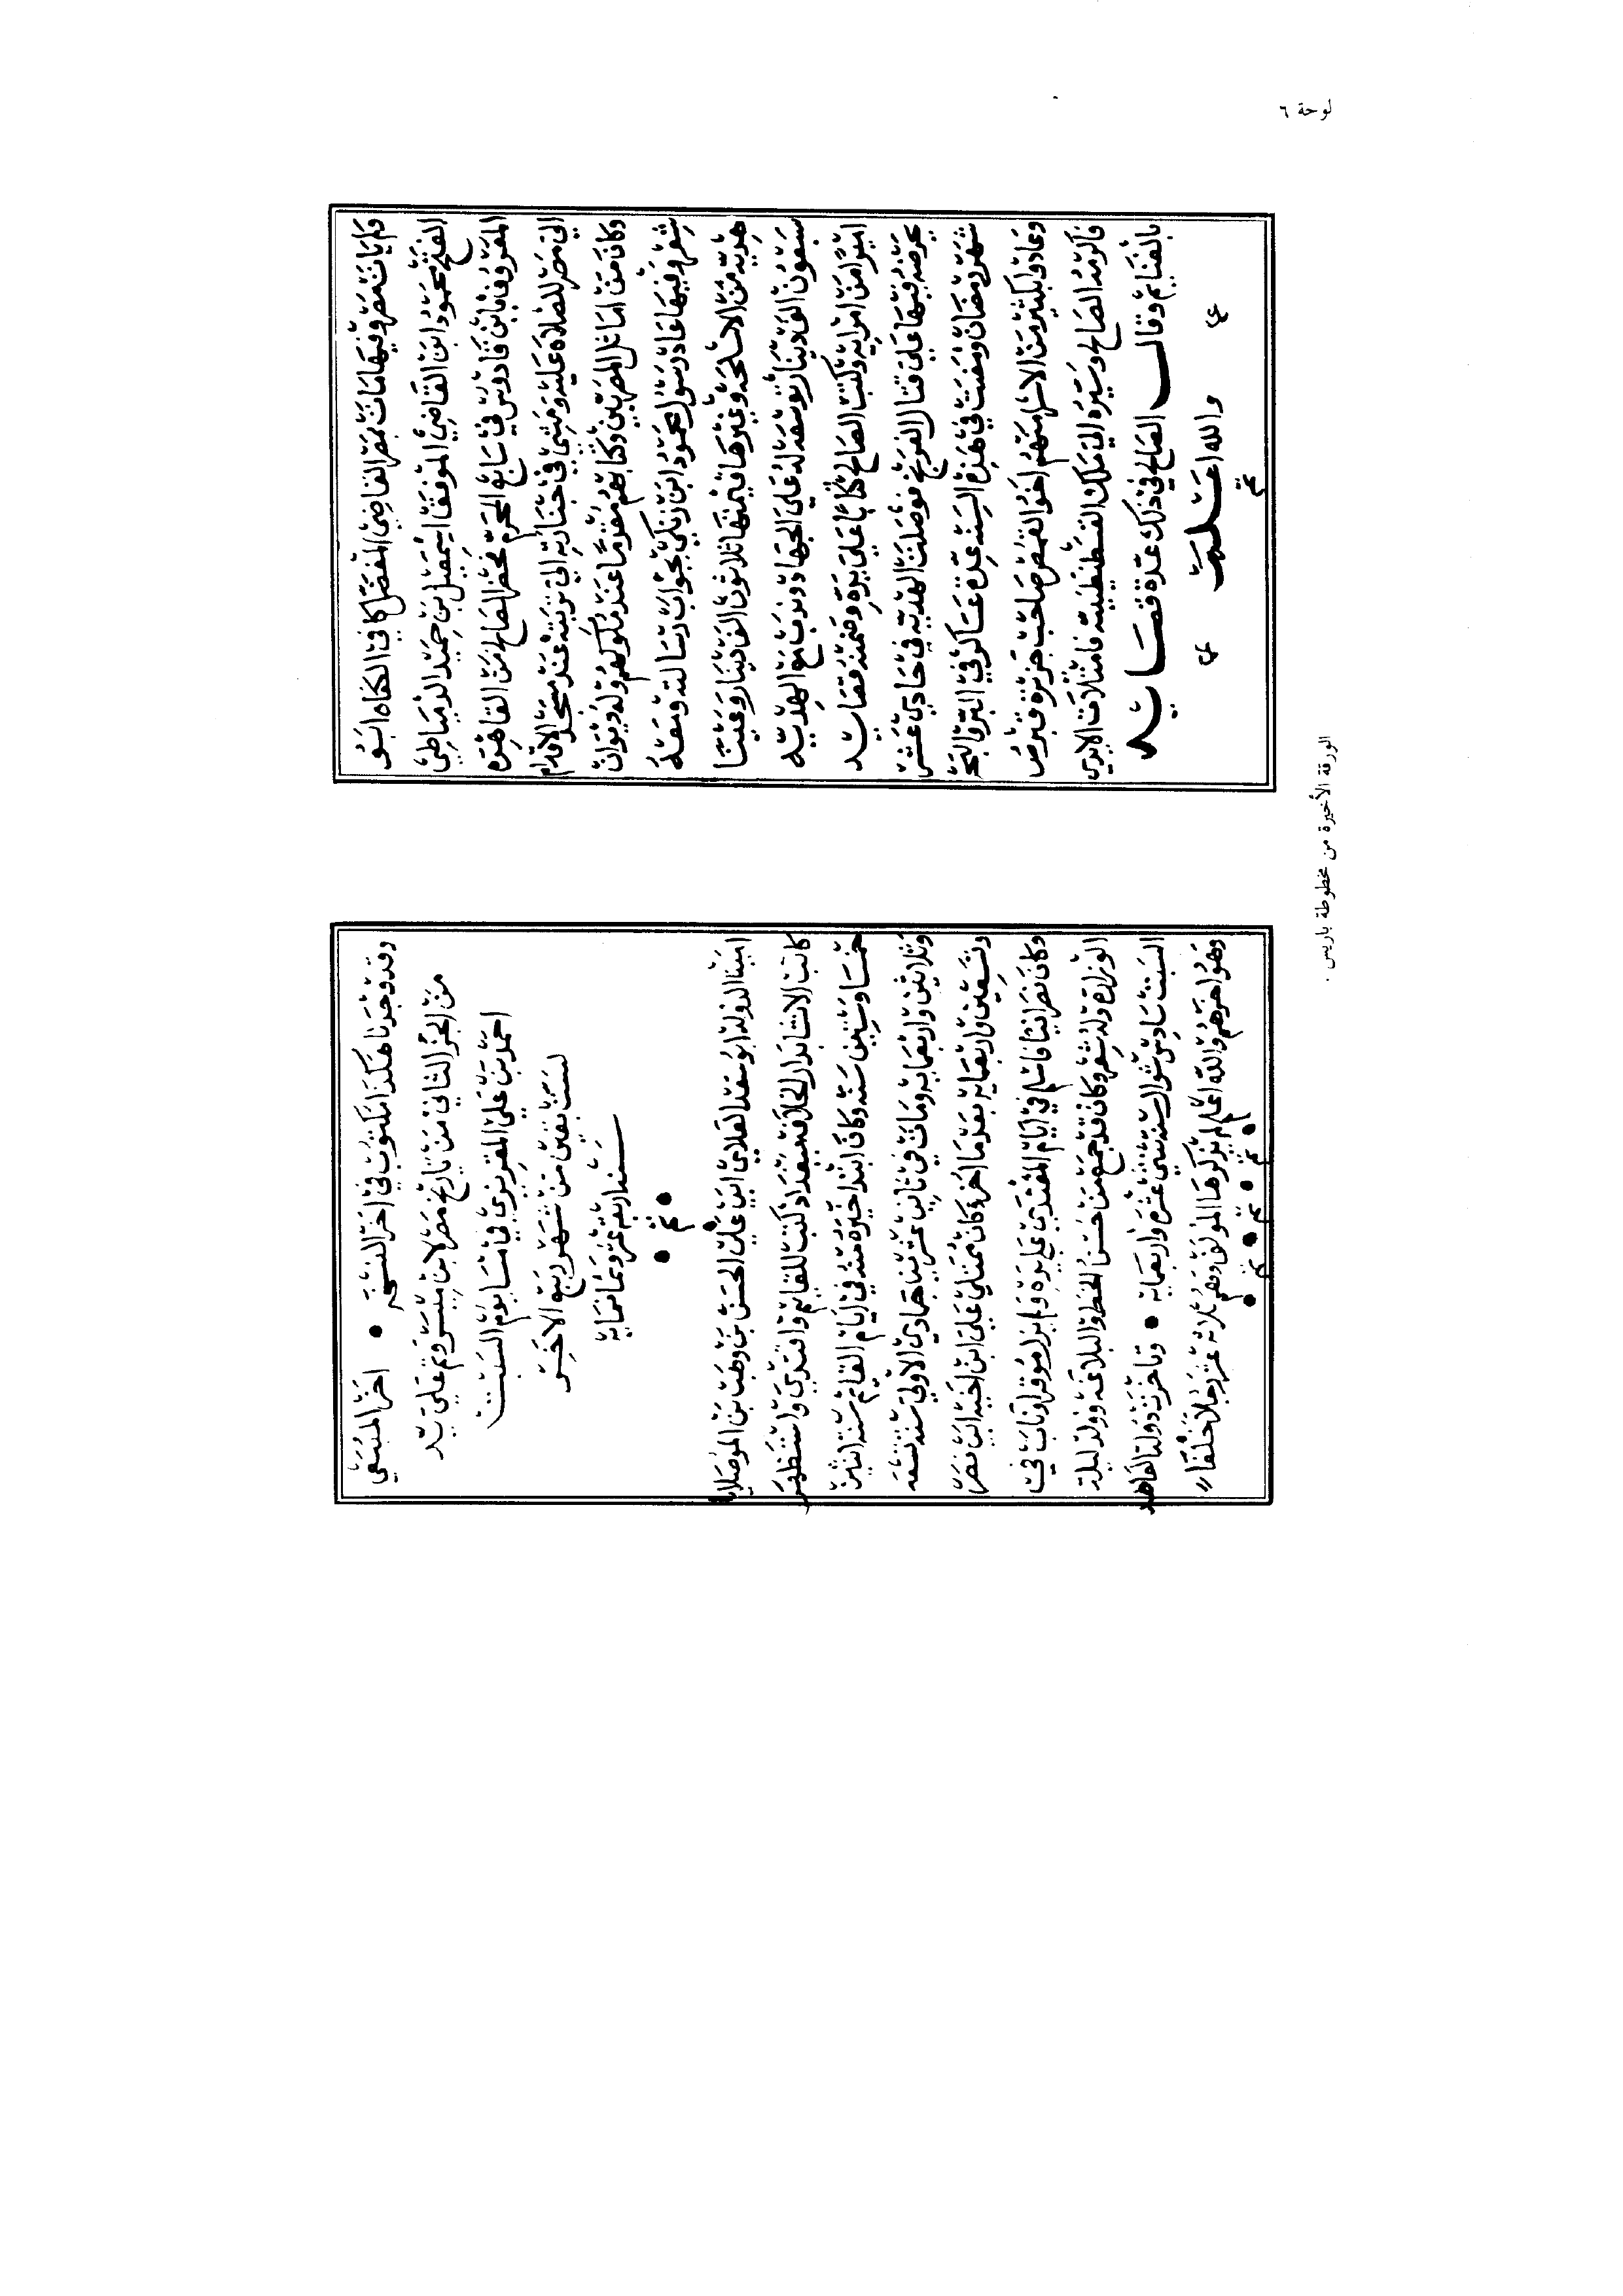 لوحة ٦
ولم يابت بمصر وفيها مات بمصر القاضي المفضل كافي الكفاه ابو
الفتح محمود ابن القاضي الموفق اسمعيل بن حميد الدمياطي
المعروف بابن قادوس في سابع المحرم فحضر الصالح من القاهرة
الي مصر للصلاة عليه ومشي في جنازته الي تربته عند مسجد الاقدام
وكان من اماثل المصريين وكتابهم مقدما عند ملوكهم وله ديوان
شعر وفيها عاد رسول محمود ابن زنكي بجواب رسالته ومعه
هدية من الاسلحه وغيرها قيمتها ثلاثون الف دينار وعينا
سبعون الف دينار توسعه له علي الجهاد وندب مع الهديه
اميرا من امرايه وكتب الصالح كتابا علي يده وضمنه قصايد
يحرضه فيها علي قتال الفرنج فوصلت الهديه في حادي عشر
شهر رمضان ومضت في هذه السنه عدة عساكر في البر والبحر
وعادوا بكثير من الاسر منهم اخو القمص صاحب جزيرة قبرص
فاكرمه الصالح وسيره الي ملك القسطنطينيه فامتلات الايدي
بالغنايم وقال الصالح في ذلك عدة قصايد
والله اعلم
تم
وقد وجدنا هكذا مكتوب في اخر النسخه • اخر المنتقي
من الجزء الثاني من تاريخ مصر لابن ميسر وتم علي يد
احمد بن علي المقريزي في مسا يوم السبت
لست بقين من شهر ربيع الاخر
سنة اربعه عشر وثمانمايه
• تم •
امين الدوله ابو سعد العلاي ابن علي الحسن بن وهب بن الموصلايا
كاتب الانشا بدار الخلافه ببغداد كتب للقايم واقتدي واستظهر
خمسا وستين سنه وكان ابتدا خبره منه في ايام القايم سنة اثنين
وثلاثين واربعمايه ومات في ثاني عشرينا جمادي الاولي سنه تسعه
وتسعين واربعمايه بعدما اضر وكان يمتلي علي ابن اخيه ابن نصر
وكان نصرانيا فاسلم في ايام المقتدي علي يده ولم يزل موقرا وناب في
الوزارة وله شعر وكان قد جمع من حسن الخط والبلاغه وولد ليلة
السبت سادس شوال سنة اثني عشره واربعمايه • وتاخرت دولت العاضد
وهو اخرهم والله اعلم لم يذكرها المولف وهم ثلاثه عشر رجلا خلفا
• تم • تم • تم •
الورقة الأخيرة من مخطوطة باريس .